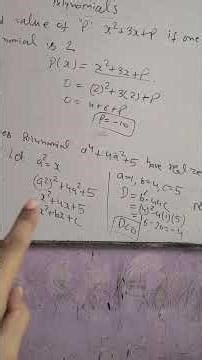 Polynomials
value of "P" x²+3x+P if one
nomial is 2
P(x) = x²+3x+P
0 = (2)²+3(2)+P
0 = 4+6+P
P=-10
Polynomial a⁴+4a²+5 have real ze
Let a²=x
(a²)²+4a²+5
x²+4x+5
x²+bx+c
a=1, b=4, c=5
D= b²-4ac
=(4)²-4(1)(5)
16-20=-4
D<0